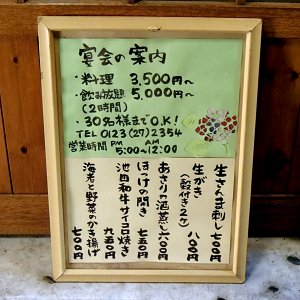 宴会の案内
・料理 3,500円～
・飲み放題 5,000円～
(2時間)
・30名様までO.K!
TEL 0123(27)2354
営業時間 PM 5:00～AM 12:00
生さんま刺し 700円
生がき(殻付き2ケ) 800円
あさりの酒蒸し 600円
ほっけの開き 750円
池田和牛サイコロ焼き 950円
海老と野菜のかき揚げ 700円